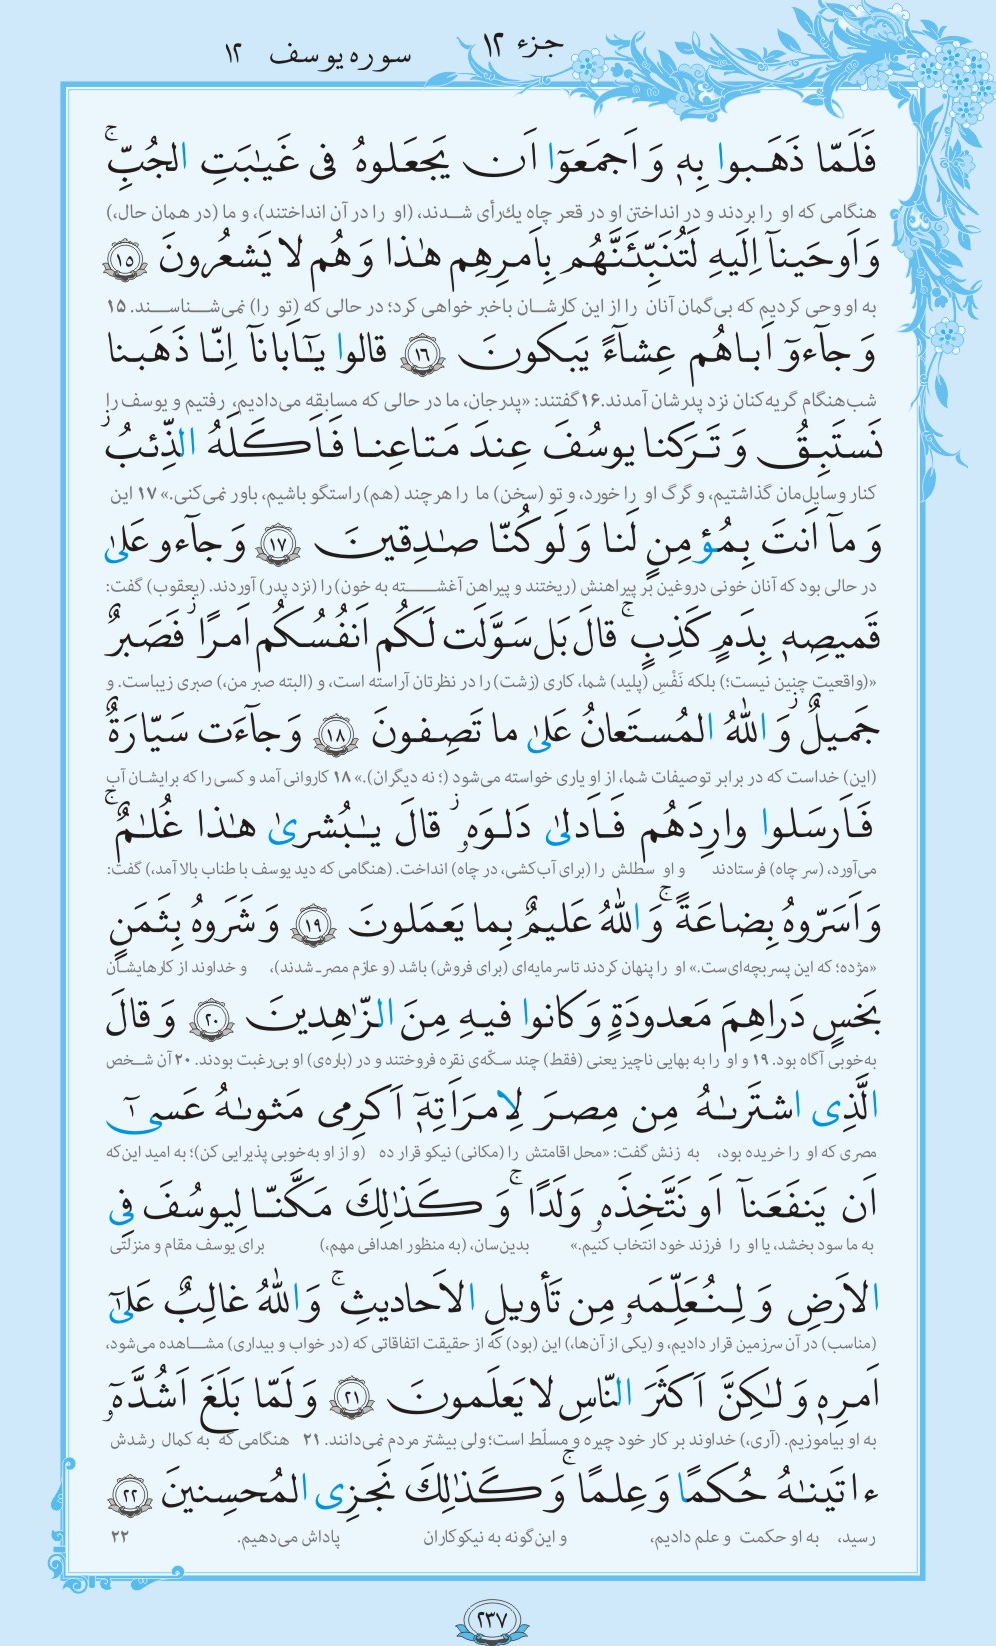 جزء ۱۲
سوره یوسف ۱۲
فَلَمّا ذَهَـبوا بِهٖ وَ اَجمَعوٓا اَن يَجعَلوهُ فى غَيٰبَتِ الجُبِّ ۚ
هنگامی که او را بردند و در انداختنِ او در قعر چاه یك‌رأی شدند، (او را در آن انداختند)، و ما (در همان حال،)
وَ اَوحَينآ اِلَيهِ لَتُنَبِّئَنَّهُم بِاَمرِهِم هٰذا وَ هُم لا يَشعُرونَ ﴿١٥﴾
به او وحی کردیم که بی‌گمان آنان را از این کارشان باخبر خواهی کرد؛ در حالی که (تو را) نمی‌شناسند. ۱۵
وَ جآءوٓ اَباهُم عِشآءً يَبكونَ ﴿١٦﴾ قالوا يٰٓاَبانآ اِنّا ذَهَبنا
شب‌هنگام گریه‌کنان نزد پدرشان آمدند.۱۶ گفتند: «پدرجان، ما در حالی که مسابقه می‌دادیم، رفتیم و یوسف را
نَستَبِقُ وَ تَرَكنا يوسُفَ عِندَ مَتاعِنا فَاَكَلَهُ الذِّئبُ ۖ
کنار وسایل‌مان گذاشتیم، و گرگ او را خورد، و تو (سخن) ما را هرچند (هم) راستگو باشیم، باور نمی‌کنی.» ۱۷ این
وَ مآ اَنتَ بِمُؤمِنٍ لَنا وَ لَو كُنّا صٰدِقينَ ﴿١٧﴾ وَ جآءو عَلىٰ
در حالی بود که آنان خونی دروغین بر پیراهنش (ریختند و پیراهن آغشته به خون) را (نزد پدر) آوردند. (یعقوب) گفت:
قَميصِهٖ بِدَمٍ كَذِبٍ ۚ قالَ بَل سَوَّلَت لَكُم اَنفُسُكُم اَمرًا ۖ فَصَبرٌ
«(واقعیت چنین نیست؛) بلکه نَفْسِ (پلید) شما، کاری (زشت) را در نظرتان آراسته است، و (البته صبر من،) صبری زیباست. و
جَميلٌ ۖ وَ اللّٰهُ المُستَعانُ عَلىٰ ما تَصِفونَ ﴿١٨﴾ وَ جآءَت سَيّارَةٌ
(این) خداست که در برابر توصیفات شما، از او یاری خواسته می‌شود (؛ نه دیگران).» ۱۸ کاروانی آمد و کسی را که برایشان آب
فَاَرسَلوا وارِدَهُم فَاَدلىٰ دَلوَهٗ ۖ قالَ يٰبُشرىٰ هٰذا غُلٰمٌ ۚ
می‌آورد، (سر چاه) فرستادند و او سطلش را (برای آب‌کشی، در چاه) انداخت. (هنگامی که دید یوسف با طناب بالا آمد،) گفت:
وَ اَسَرّوهُ بِضاعَةً ۚ وَ اللّٰهُ عَليمٌ بِما يَعمَلونَ ﴿١٩﴾ وَ شَرَوهُ بِثَمَنٍ
«مژده؛ که این پسربچه‌ای‌ست.» او را پنهان کردند تا سرمایه‌ای (برای فروش) باشد (و عازم مصر شدند)، و خداوند از کارهایشان
بَخسٍ دَراهِمَ مَعدودَةٍ وَ كانوا فيهِ مِنَ الزّٰهِدينَ ﴿٢٠﴾ وَ قالَ
به‌خوبی آگاه بود. ۱۹ و او را به بهایی ناچیز یعنی (فقط) چند سکّه‌ی نقره فروختند و در (باره‌ی) او بی‌رغبت بودند. ۲۰ آن شخص
الَّذِى اشتَرىٰهُ مِن مِصرَ لِامرَاَتِهٖٓ اَكرِمى مَثوىٰهُ عَسىٰٓ
مصری که او را خریده بود، به زنش گفت: «محل اقامتش را (مکانی) نیکو قرار ده (و از او به‌خوبی پذیرایی کن)؛ به امید این‌که
اَن يَنفَعَنآ اَو نَتَّخِذَهٗ وَلَدًا ۚ وَ كَذٰلِكَ مَكَّنّا لِيوسُفَ فِى
به ما سود بخشد، یا او را فرزند خود انتخاب کنیم.» بدین‌سان، (به منظور اهدافی مهم،) برای یوسف مقام و منزلتی
الاَرضِ وَ لِنُعَلِّمَهٗ مِن تَأويلِ الاَحاديثِ ۚ وَ اللّٰهُ غالِبٌ عَلىٰٓ
(مناسب) در آن سرزمین قرار دادیم، و (یکی از آن‌ها،) این (بود) که از حقیقت اتفاقاتی که (در خواب و بیداری) مشاهده می‌شود،
اَمرِهٖ وَ لٰكِنَّ اَكثَرَ النّاسِ لا يَعلَمونَ ﴿٢١﴾ وَ لَمّا بَلَغَ اَشُدَّهٗٓ
به او بیاموزیم. (آری،) خداوند بر کار خود چیره و مسلّط است؛ ولی بیشتر مردم نمی‌دانند. ۲۱ هنگامی که به کمال رشدش
ءاتَينٰهُ حُكمًا وَ عِلمًا ۚ وَ كَذٰلِكَ نَجزِى المُحسِنينَ ﴿٢٢﴾
رسید، به او حکمت و علم دادیم، و این‌گونه به نیکوکاران پاداش می‌دهیم. ۲۲
۲۳۷